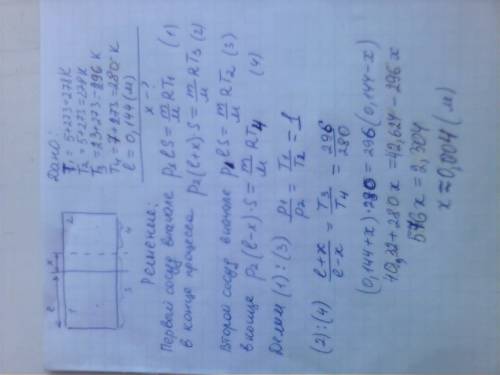 Дано:
T₁ = 5+273=278K
T₂ = 5+273=278K
T₃ = 23+273=296K
T₄ = 7+273=280K
l = 0,144 (м)
x - ?
l
x
1 2
3 4
Решение:
Первый сосуд вначале p₁lS = m/M RT₁ (1)
в конце процесса p₂(l+x)S = m/M RT₃ (2)
Второй сосуд вначале p₁lS = m/M RT₂ (3)
в конце p₂(l-x)·S = m/M RT₄ (4)
Делим (1):(3) p₁/p₂ = T₁/T₂ = 1
(2):(4) l+x/l-x = T₃/T₄ = 296/280
(0,144+x)·280 = 296(0,144-x)
40,32+280x = 42,624-296x
576x = 2,304
x = 0,004 (м)